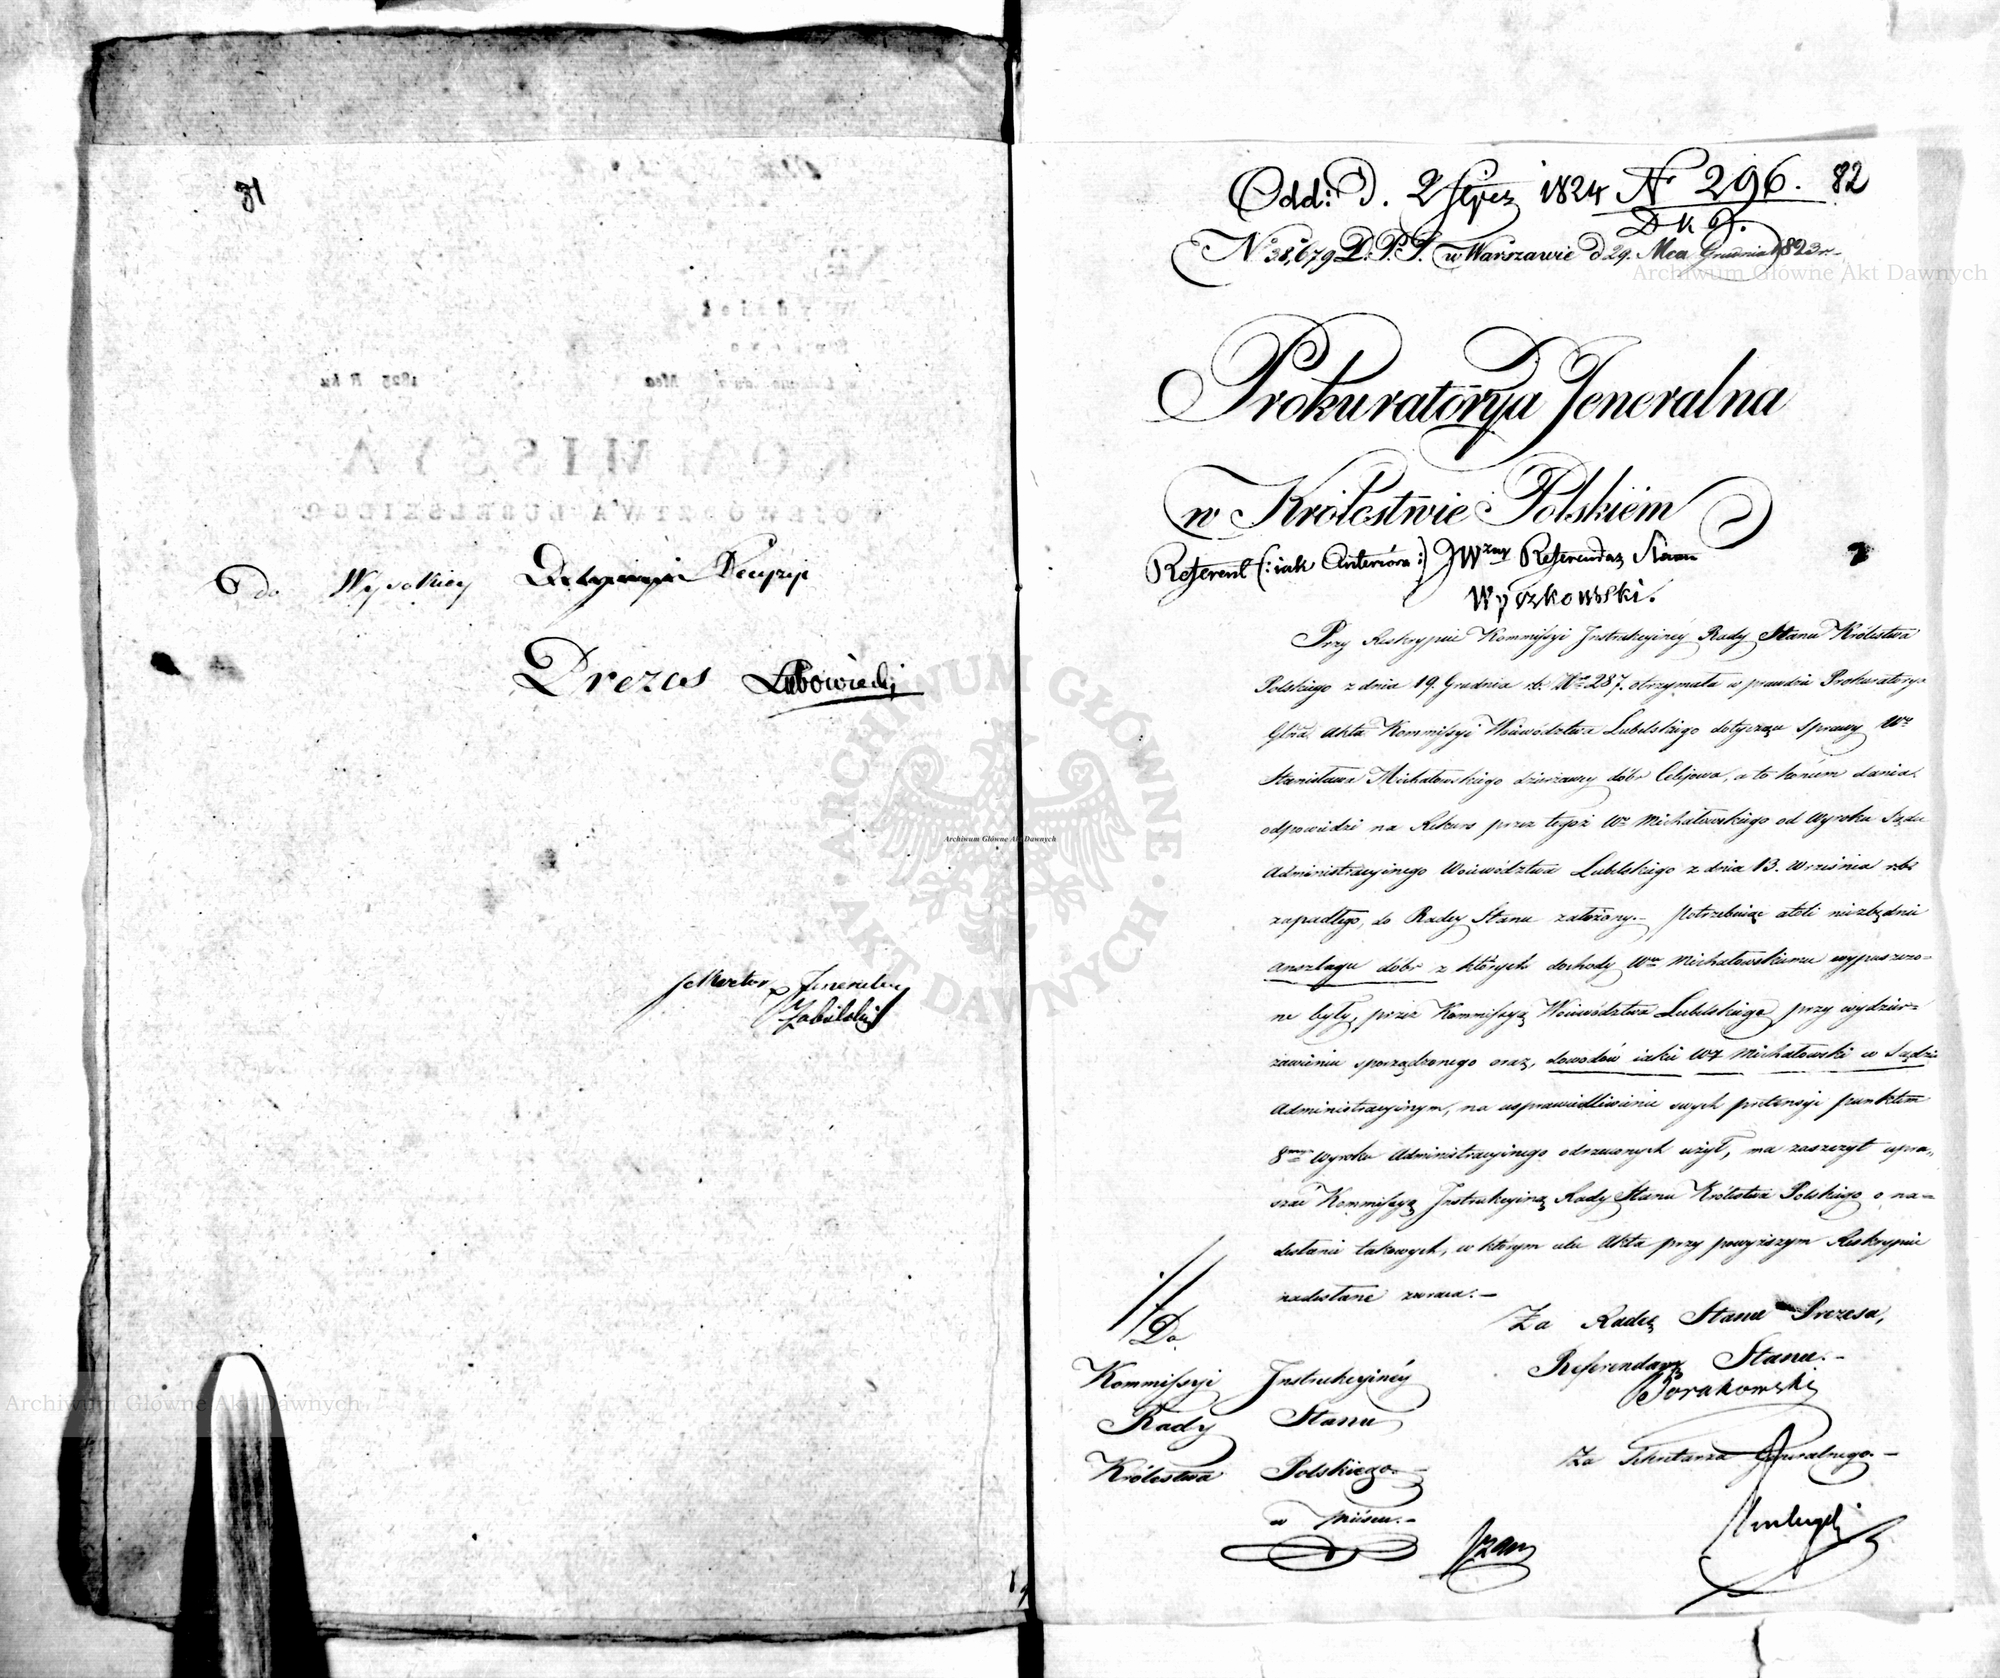 81
Do Wysokiey Delegacyi Decyzyi
Prezes Lubowiecki
Sekretarz Jeneralny
Odd: D. 2 Stycz 1824 Nr 296. 82
D K J.
No 38,679 D. P. S. w Warszawie d 29. Mca Grudnia 1823 r.
Prokuratorya Jeneralna
w Królestwie Polskiém
Referent (: iak Anteriora :) JWzny Referendarz Stanu
Wyczkowski.
Przy Reskrypcie Kommissyi Instrukcyinéy Rady Stanu Królestwa
Polskiego z dnia 19. Grudnia r.b. No 287. otrzymała w prawdzie Prokuratorya
Glna Akta Kommissyi Woiewództwa Lubelskiego dotyczące Sprawy Wo
Stanisława Michałowskiego dzierzawcy dóbr Celejowa, a to koncem dania
odpowiedzi na Rekurs przez tegoż Wo Michałowskiego od Wyroku Sądu
Administracyinego Woiewództwa Lubelskiego z dnia 13. Września r.b.
zapadłego, do Rady Stanu założony. – potrzebuiąc atoli niezbędnie
Anszlagu dóbr z których dochody Wu Michałowskiemu wypuszczo-
ne były, przez Kommissyą Woiewództwa Lubelskiego przy wydzier-
zawieniu sporządzonego oraz, dowodów iakie WJ Michałowski w Sądzie
Administracyinym, na usprawiedliwienie swych pretensyi punktem
8mym Wyroku Administracyinego odrzuconych użył, ma zaszczyt upra-
szać Kommissyą Instrukcyiną Rady Stanu Królestwa Polskiego o na-
desłanie takowych, w którym celu Akta przy powyższym Reskrypcie
nadesłane zwraca. –
Za Radcę Stanu Prezesa,
Referendarz Stanu. –
Do
Kommissyi Instrukcyinéy
Rady Stanu
Królestwa Polskiego. –
w Mieyscu. –
Za Sekretarza Generalnego. –
Archiwum Główne Akt Dawnych
Archiwum Główne Akt Dawnych
Archiwum Główne Akt Dawnych
ARCHIWUM GŁÓWNE AKT DAWNYCH